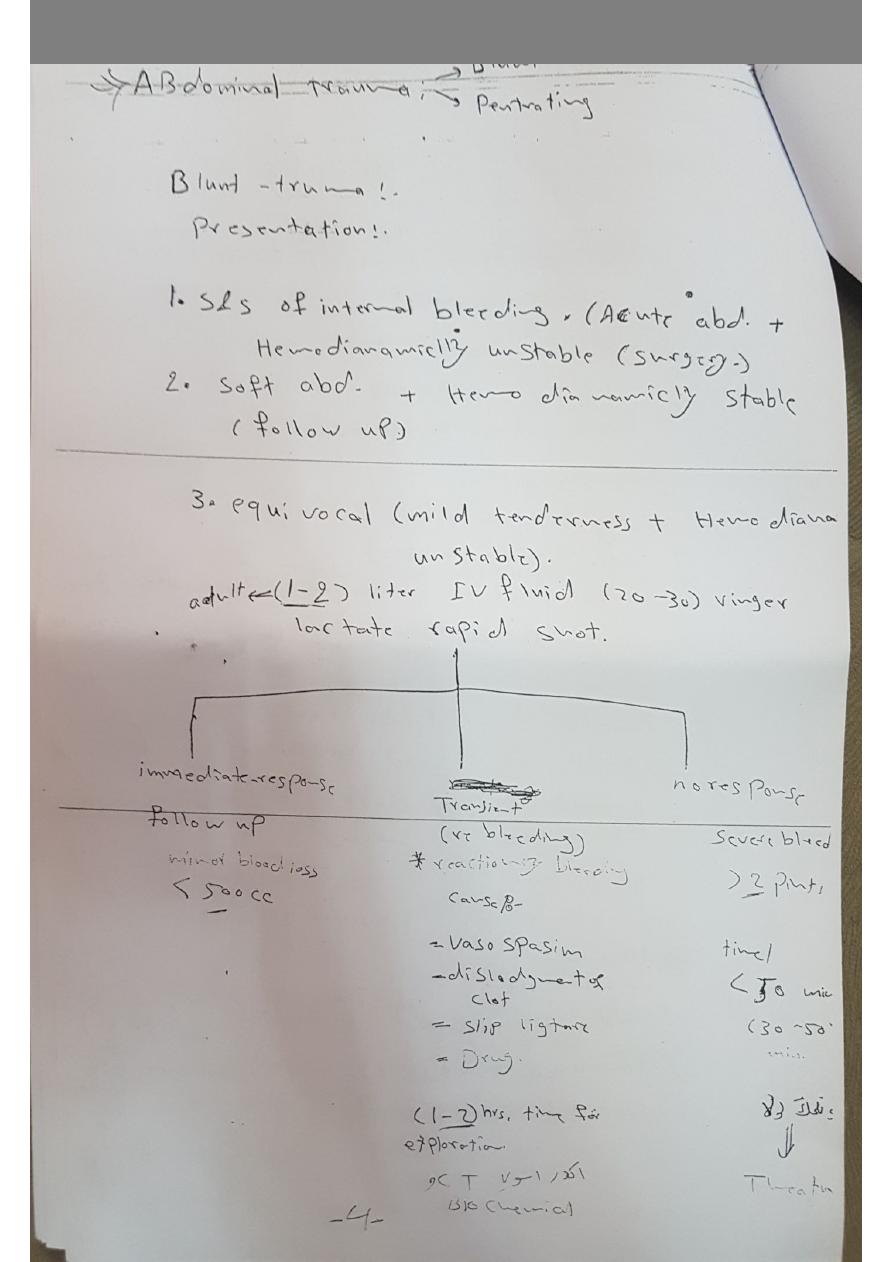 ABdominal trauma:
Pentrating
Blunt -truma!.
Presentation!.
1. S&S of internal bleeding. (Acute abd. +
Hemodianamiclly unstable (surgery.)
2. Soft abd. + Hemo dianamicly stable
(follow up)
3. equivocal (mild tenderness + Hemodiana
unstable).
adult (1-2) liter IV fluid (20-30) ringer
lactate rapid shot.
immediate-response
Transient
no response
follow up
(re bleeding)
Severe bleed
minor blood loss
* reactionary bleeding
>2 pints
< 500 cc
Cause:-
= Vaso spasim
time/
- dislodgment of
clot
< 50 min
= slip ligture
(30-50
min.
= Drug.
(1-2) hrs. time for
exploration
CT
Bio Chemical
-4-